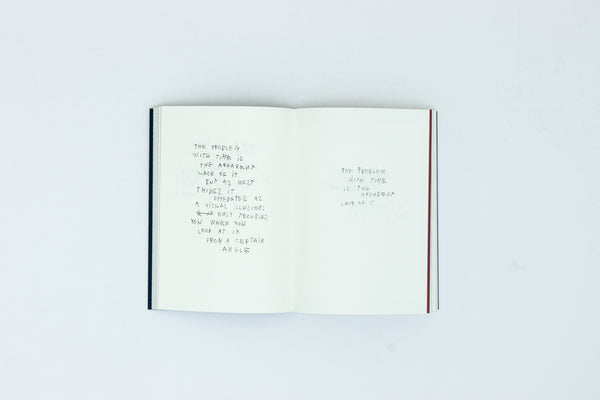 THE PROBLEM
WITH TIME IS
THE APPARENT
LACK OF IT
BUT AS MOST
THINGS IT
OPERATES AS
A VISUAL ILLUSION;
ONLY TROUBLES
YOU WHEN YOU
LOOK AT IT
FROM A CERTAIN
ANGLE
THE PROBLEM
WITH TIME
IS THE
APPARENT
LACK OF IT